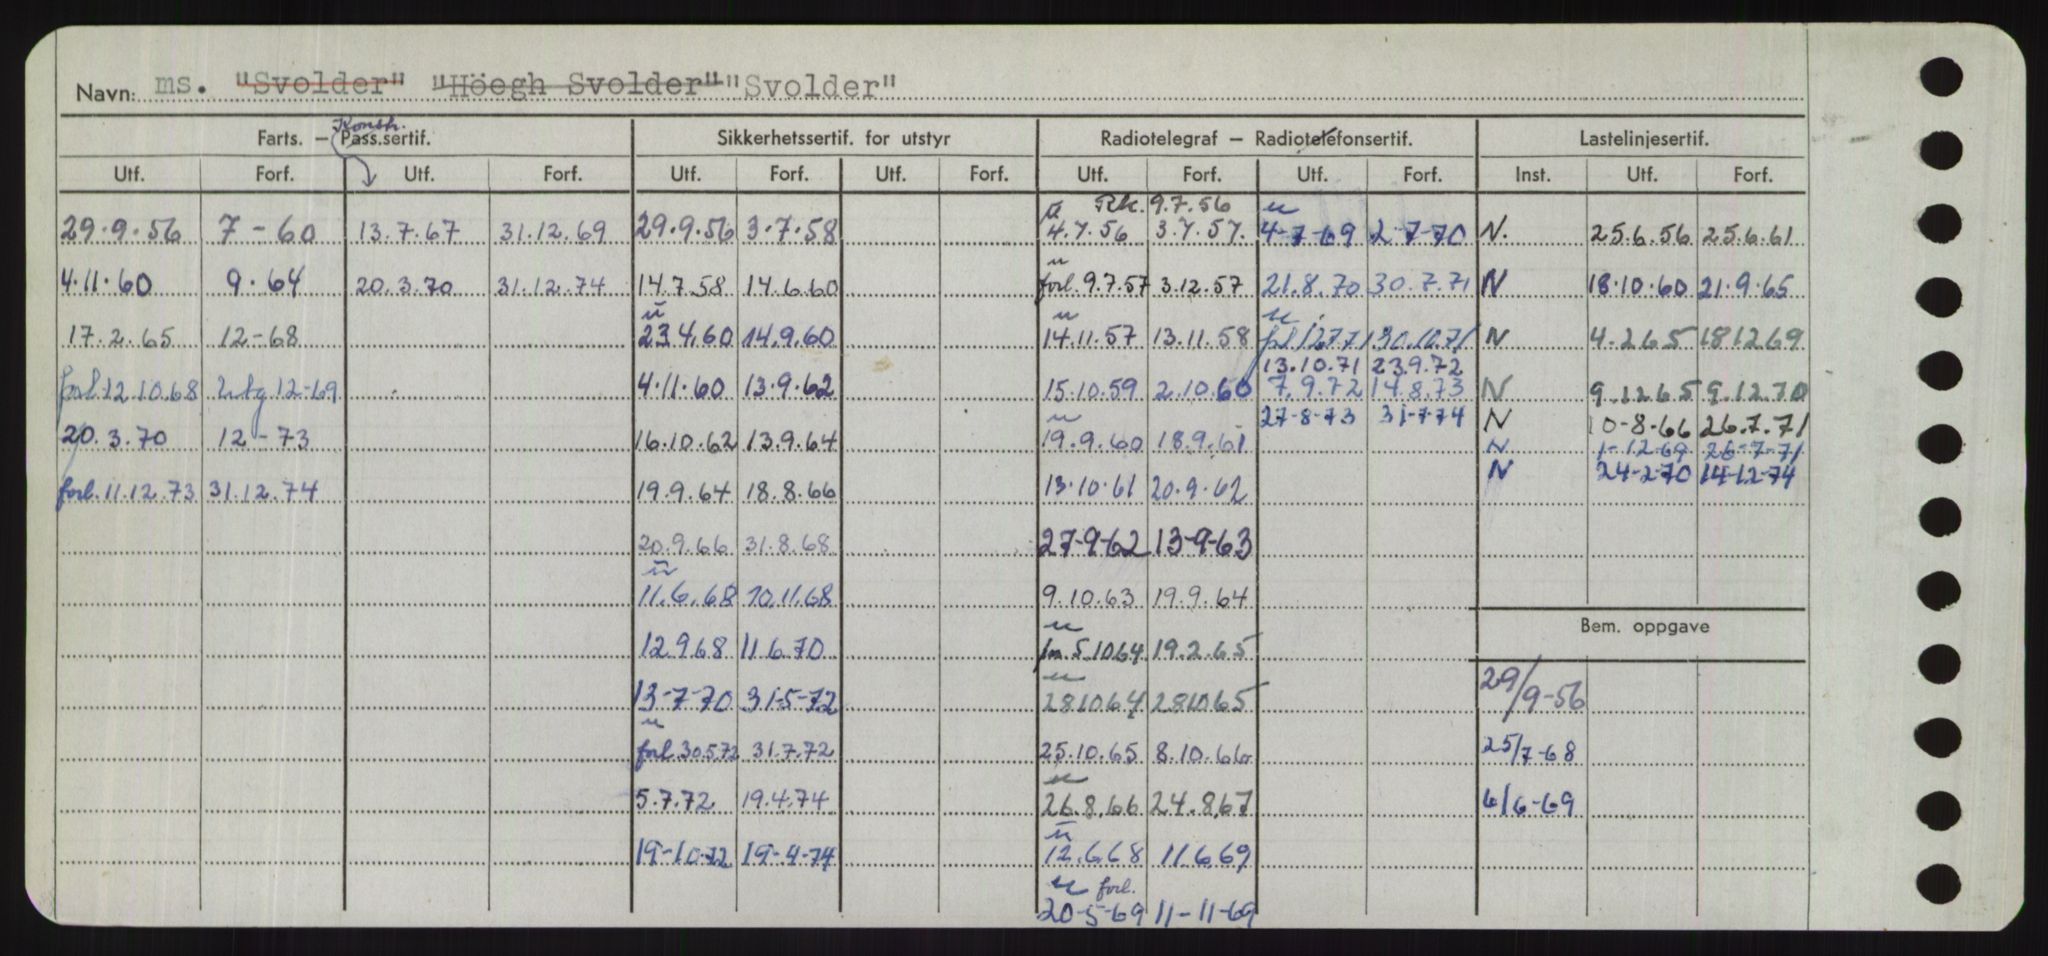 Navn: ms. "Svolder" "Höegh Svolder" "Svolder"
Konstr.
Farts. — Pass.sertif. Sikkerhetssertif. for utstyr Radiotelegraf — Radiotelefonsertif. Lastelinjesertif.
Utf. Forf. Utf. Forf. Utf. Forf. Utf. Forf. Utf. Forf. Utf. Forf. Inst. Utf. Forf.
Rk. 9.7.56
29.9.56 7-60 13.7.67 31.12.69 29.9.56 3.7.58 4.7.56 3.7.57. 4-7-69 2-7-70 N. 25.6.56 25.6.61
4.11.60 9.64 20.3.70 31.12.74 14.7.58 14.6.60 forl. 9.7.57 3.12.57 21.8.70 30.7.71 N 18.10.60 21.9.65
17.2.65 12-68 23.4.60 14.9.60 14.11.57 13.11.58 30.10.71 N 4.2.65 18.12.69
13.10.71 23.9.72
forl 12.10.68 utg 12-69 4.11.60 13.9.62 15.10.59 2.10.60 7.9.72 14.8.73 N 9.12.65 9.12.70
27-8-73 31-7-74 N 10-8-66 26.7.71
20.3.70 12-73 16.10.62 13.9.64 19.9.60 18.9.61 N 1-12-69 26-7-71
N 24-2-70 14-12-74
forl. 11.12.73 31.12.74 19.9.64 18.8.66 13.10.61 20.9.62
20.9.66 31.8.68 27-9-62 13-9-63
11.6.68 10.11.68 9.10.63 19.9.64
Bem. oppgave
12.9.68 11.6.70 5.10.64 19.2.65
13-7-70 31-5-72 28.10.64 28.10.65 29/9-56
forl 30.5.72 31.7.72 25.10.65 8.10.66 25/7-68
5.7.72 19.4.74 26.8.66 24.8.67 6/6-69
19-10-72 19-4-74 12.6.68 11.6.69
forl.
20-5-69 11-11-69